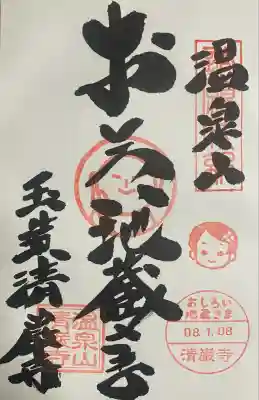 温泉山
おしろい地蔵
玉造 清巌寺
温泉山
清巌寺
おしろい
地蔵さま
08.1.08
清巌寺